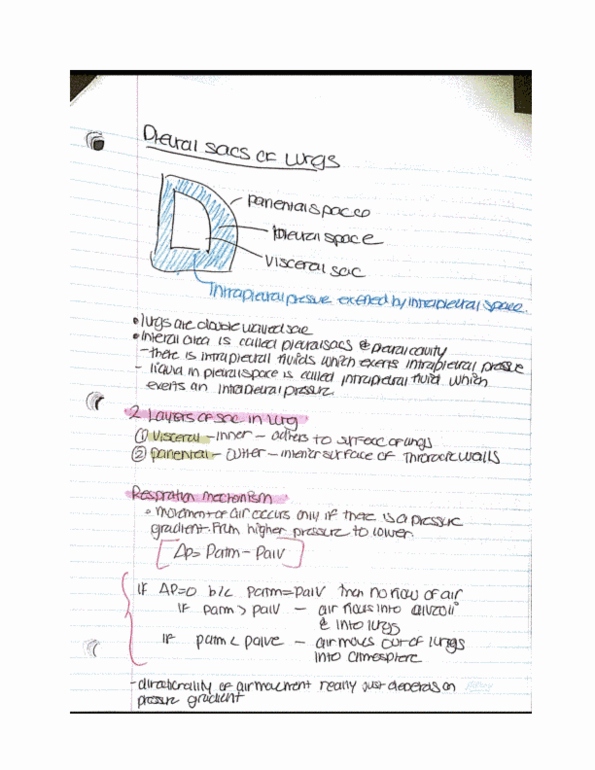 Pleural sacs of lungs
Parietal space
Pleural space
visceral sac
Intrapleural pressure exerted by intrapleural space.
• lungs are double walled sac
• Internal area is called pleural sacs & pleural cavity
- there is intrapleural fluids which exerts intrapleural pressure
- liquid in pleural space is called intrapleural fluid which
exerts an intrapleural pressure.
2 Layers of sac in lung
① visceral - inner - adhers to surface of lungs
② parietal - outter - interior surface of Thoracic walls
Respiration mechanism
• movement of air occurs only if there is a pressure
gradient. From higher pressure to lower.
ΔP = Patm - Palv
IF ΔP=0 b/c Patm=Palv then no flow of air
IF Patm > Palv - air flows into alveoli
& into lungs
IF Patm < Palve - air moves out of lungs
into atmosphere
- directionality of air movement really just depends on
pressure gradient